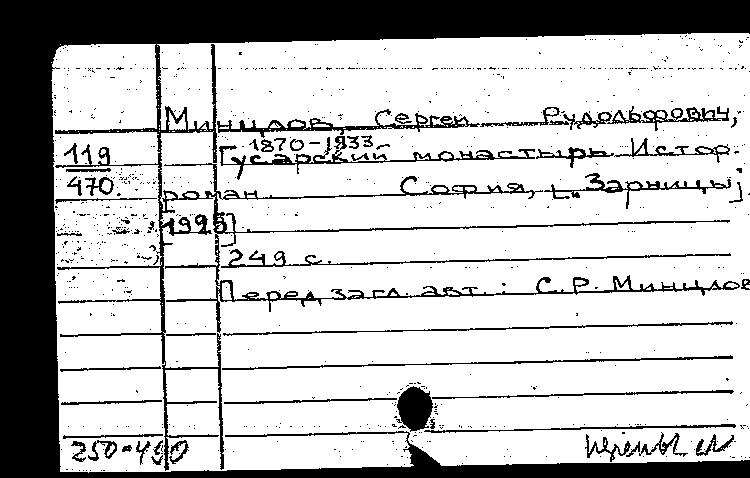 Минцлов, Сергей Рудольфович,
1870-1933
119 Гусарский монастырь. Истор.
470. роман. София, ["Зарницы]
[1925].
249 с.
Перед загл. авт.: С.Р. Минцлов
250-490